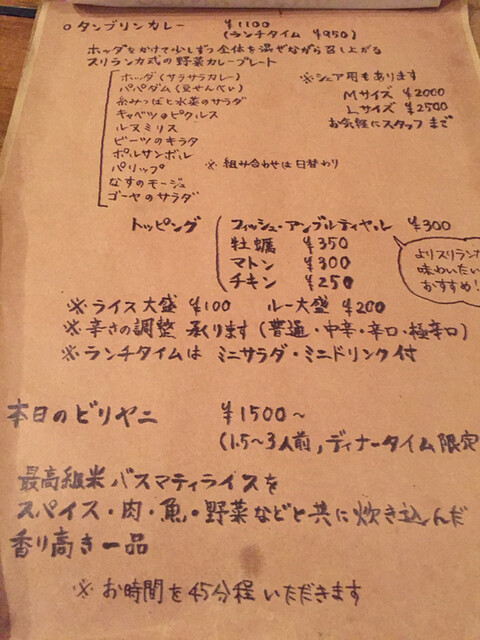 ○タンブリンカレー ¥1100
(ランチタイム ¥950)
ホッダをかけて少しずつ全体を混ぜながら召し上がる
スリランカ式の野菜カレープレート
ホッダ(サラサラカレー)
パパダム(豆せんべい)
糸みつばと水菜のサラダ
キャベツのピクルス
ルヌミリス
ビーツのキラタ
ポルサンボル
パリップ
なすのモージュ
ゴーヤのサラダ
※シェア用もあります
Mサイズ ¥2000
Lサイズ ¥2500
お気軽にスタッフまで
※組み合わせは日替わり
トッピング
フィッシュ・アンブルティヤル ¥300
牡蠣 ¥350
マトン ¥300
チキン ¥250
よりスリランカ
味わいたい
おすすめ!
※ライス大盛 ¥100 ルー大盛 ¥200
※辛さの調整 承ります(普通・中辛・辛口・極辛口)
※ランチタイムは ミニサラダ・ミニドリンク付
本日のビリヤニ ¥1500〜
(1.5〜3人前, ディナータイム限定
最高級米バスマティライスを
スパイス・肉・魚・野菜などと共に炊き込んだ
香り高き一品
※お時間を45分程いただきます